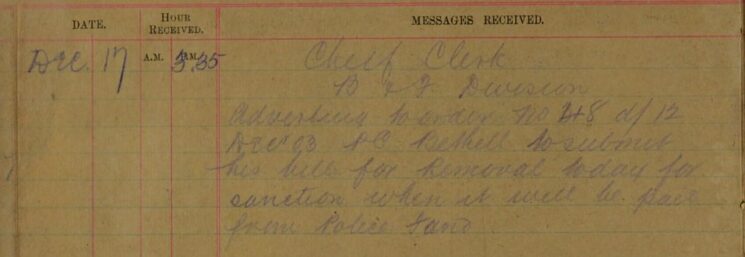 DATE.
HOUR RECEIVED.
MESSAGES RECEIVED.
Dec. 17
A.M. P.M. 3.35
Chief Clerk
B & F Division
Adverting to order No 248 d/12
Dec 03 PC Bethell to submit
his bill for Removal today for
sanction when it will be paid
from Police Fund